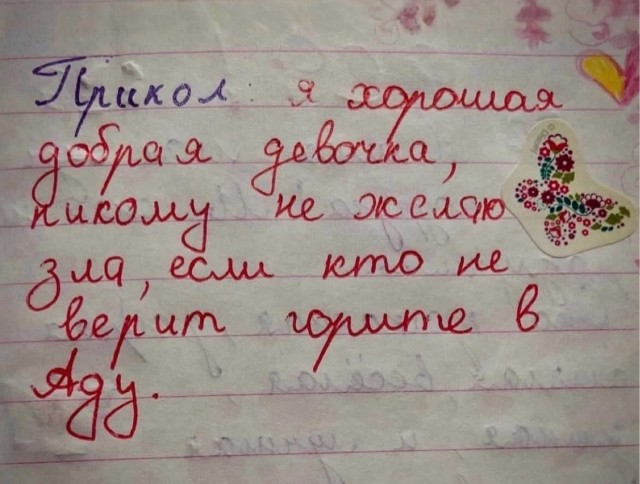 Прикол я хорошая
добрая девочка,
никому не желаю
зла, если кто не
верит горите в
Аду.